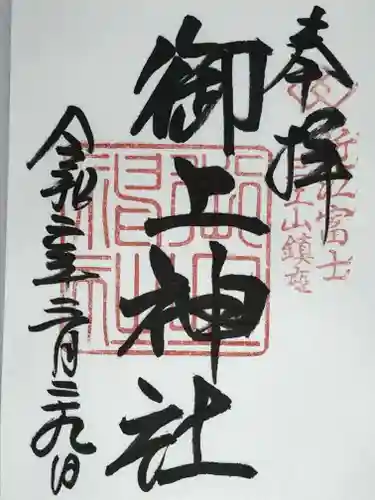 奉拝
近江富士
三上山鎮座
御上神社
令和三年三月二十九日